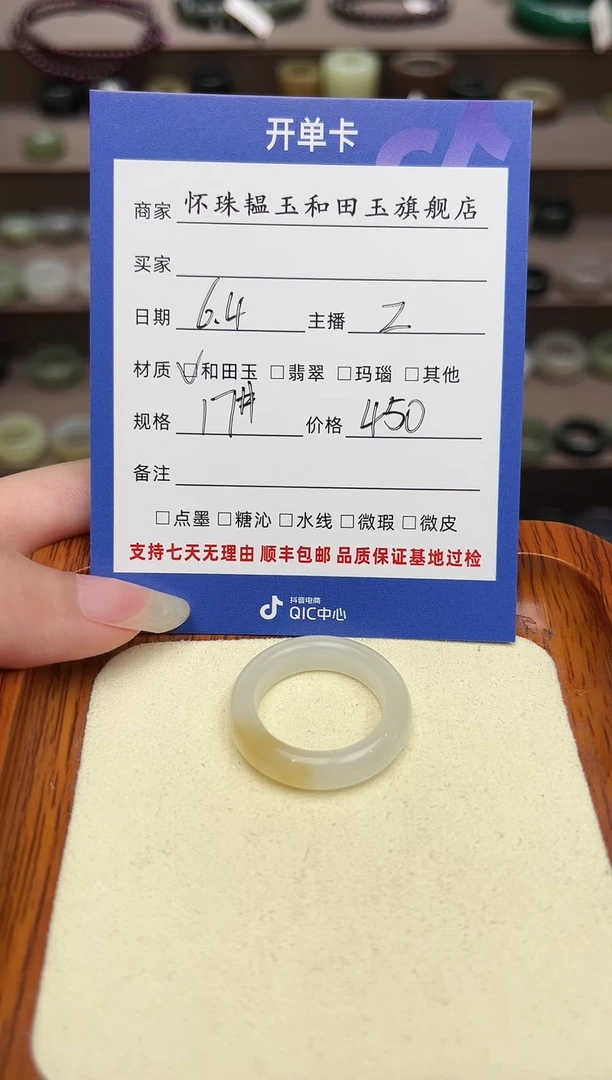 开单卡
商家 怀珠韫玉和田玉旗舰店
买家
日期 6.4 主播 Z
材质 ☑和田玉 □翡翠 □玛瑙 □其他
规格 17# 价格 450
备注
□点墨 □糖沁 □水线 □微瑕 □微皮
支持七天无理由 顺丰包邮 品质保证基地过检
抖音电商
QIC中心